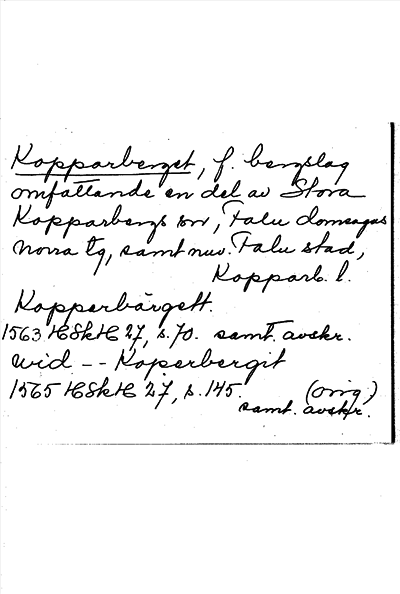 Kopparberget, f. bergslag
omfattande en del av Stora
Kopparbergs sn, Falu domsagas
norra tg, samt nuv. Falu stad,
Kopparb. l.
Kopperbärgett.
1563 HSkH 27, s. 70. samt. avskr.
wid -- Koperbergit
1565 HSkH 27, s. 145. (orig)
samt. avskr.